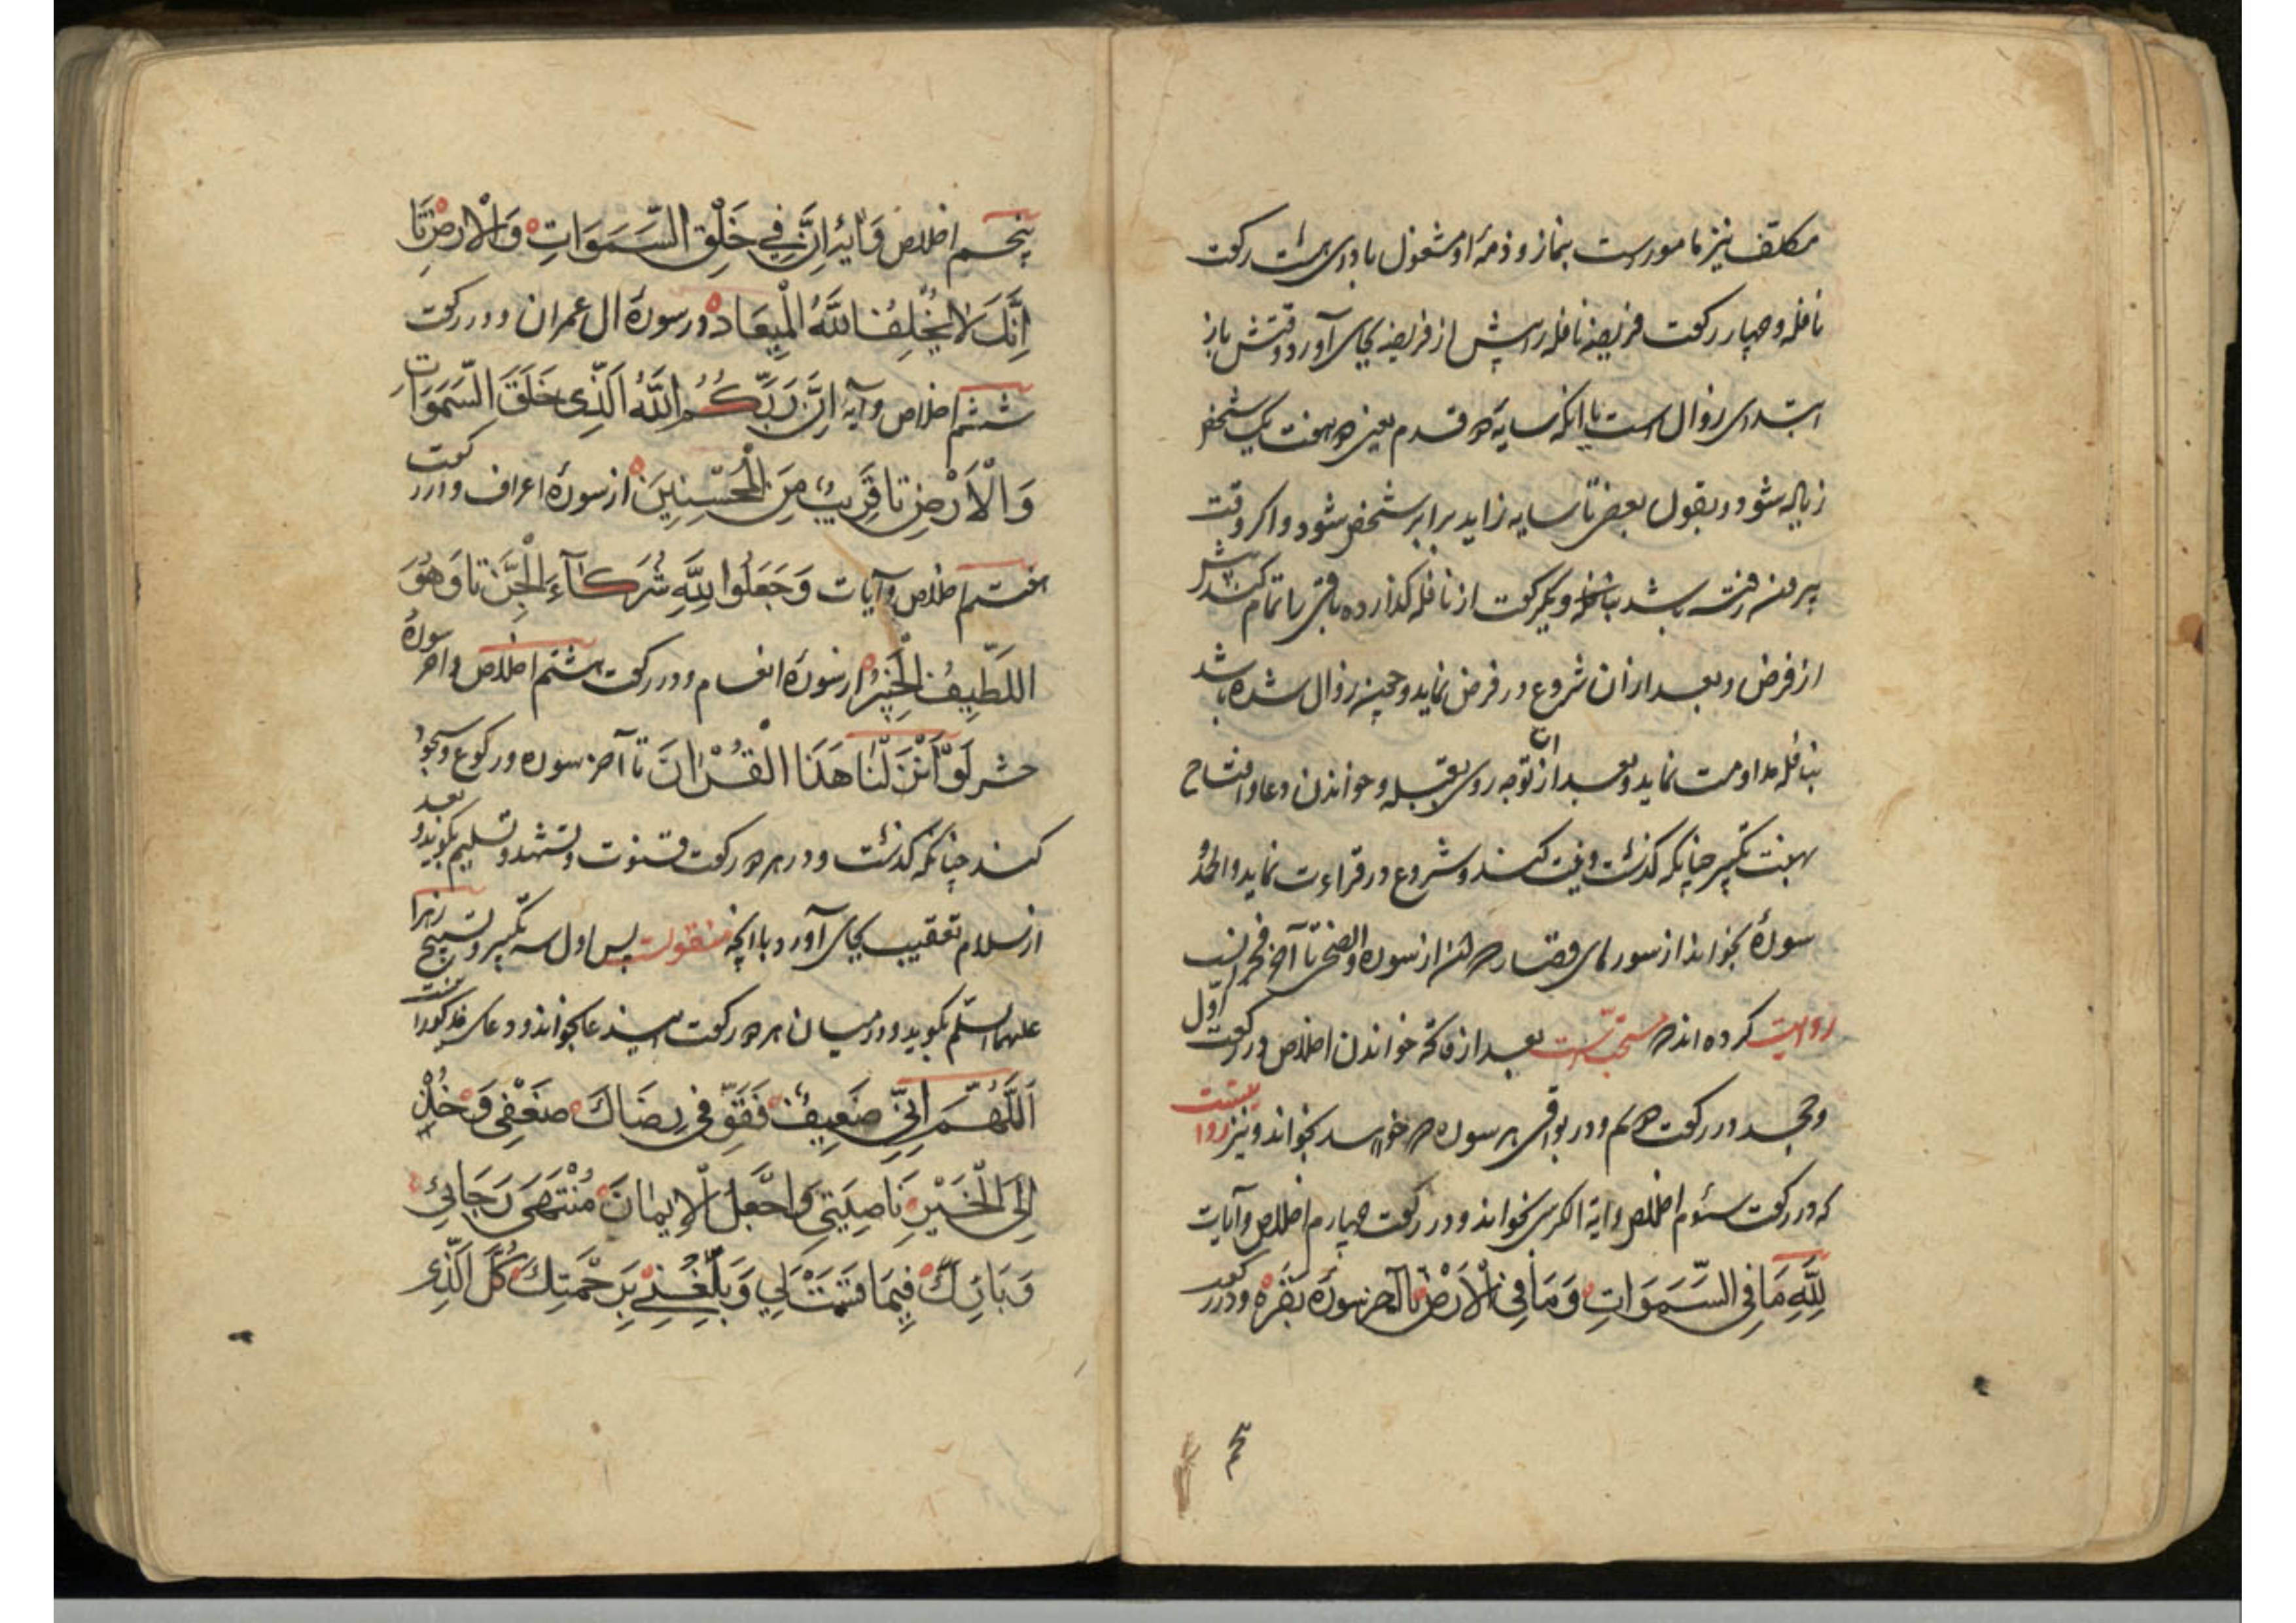 مکلف نیز مامورست بنماز و ذمهٔ او مشغول بادای هشت رکعت
نافله و چهار رکعت فریضه نافله را پیش از فریضه بجای آورد و وقتش باز
ابتدای زوال است تا آنکه سایه دو قدم یعنی دو هفت یک شخص
زیاده شود و بقول بعضی تا سایه زاید برابر شخص شود و اگر وقت
بیرون رفته باشد و یکرکعت از نافله گذارده باقی را تمام کند پیش
از فرض و بعد از آن شروع در فرض نماید و چون زوال شده باشد
بنافله مداومت نماید و بعد از ان توجه روی بقبله و خواندن دعا و افتتاح
بهفت تکبیر چنانکه گذشت و نیت کند و شروع در قراءت نماید و الحمد و
سورهٔ بخواند از سورهای قصار که از سوره والضحی تا آخر قرانست
روایت کرده اند که مستحبست بعد از فاتحه خواندن اخلاص در رکعت اول
وجحد در رکعت دویم و در بواقی هر سوره که خواهد بخواند و نیز روایتست
که در رکعت سئوم اخلاص و ایة الکرسی بخواند و در رکعت چهارم اخلاص و آیات
لِلَّهِ مَا فِی السَّمَوَاتِ وَمَا فِی الْاَرْضِ تا آخر سورهٔ بقره و در رکعت
پنجم اخلاص و آیهٔ اِنَّ فِي خَلْقِ السَّمَوَاتِ وَالْاَرضِ تَا
اِنَّكَ لَا تُخْلِفُ الْمِيعَادَ در سورهٔ ال عمران و در رکعت
ششم اخلاص و آیه اِنَّ رَبَّكُمُ اللَّهُ الَّذِی خَلَقَ السَّمَوَاتِ
وَالْاَرْضِ تا قَرِيبٌ مِنَ الْمُحْسِنِينَ از سورهٔ اعراف و در رکعت
هفتم اخلاص و آیات وَجَعَلُوا لِلَّهِ شُرَكَآءَ الْجِنَّ تا وَهُوَ
اللَّطِيفُ الْخَبِيرُ از سورهٔ انعام و در رکعت هشتم اخلاص و آخر سورهٔ
حشر لَوْ اَنْزَلْنَا هَذَا الْقُرْانَ تا آخر سوره و رکوع و سجود
کند چنانکه گذشت و در هر دو رکعت قنوت و تشهد و تسلیم بگوید و بعد
از سلام تعقیب بجای آورد بانچه منقولست پس اول سه تکبیر و تسبیح زهرا
علیها السلم بگوید و در میان هر دو رکعت این دعا بخواند و دعای مذکور اینست
اَللَّهُمَّ اِنِّي ضَعِيفٌ فَقَوِّ فِی رِضَاكَ ضَعْفِی وَخُذْ
اِلَى الْخَيْرِ نَاصِيَتِی وَاجْعَلِ الْاِيمَانَ مُنْتَهَى رَجَائِی
وَبَارِكْ فِيمَا قَسَمْتَ لِي وَبَلِّغْنِي بِرَحْمَتِكَ كُلَّ الَّذِی